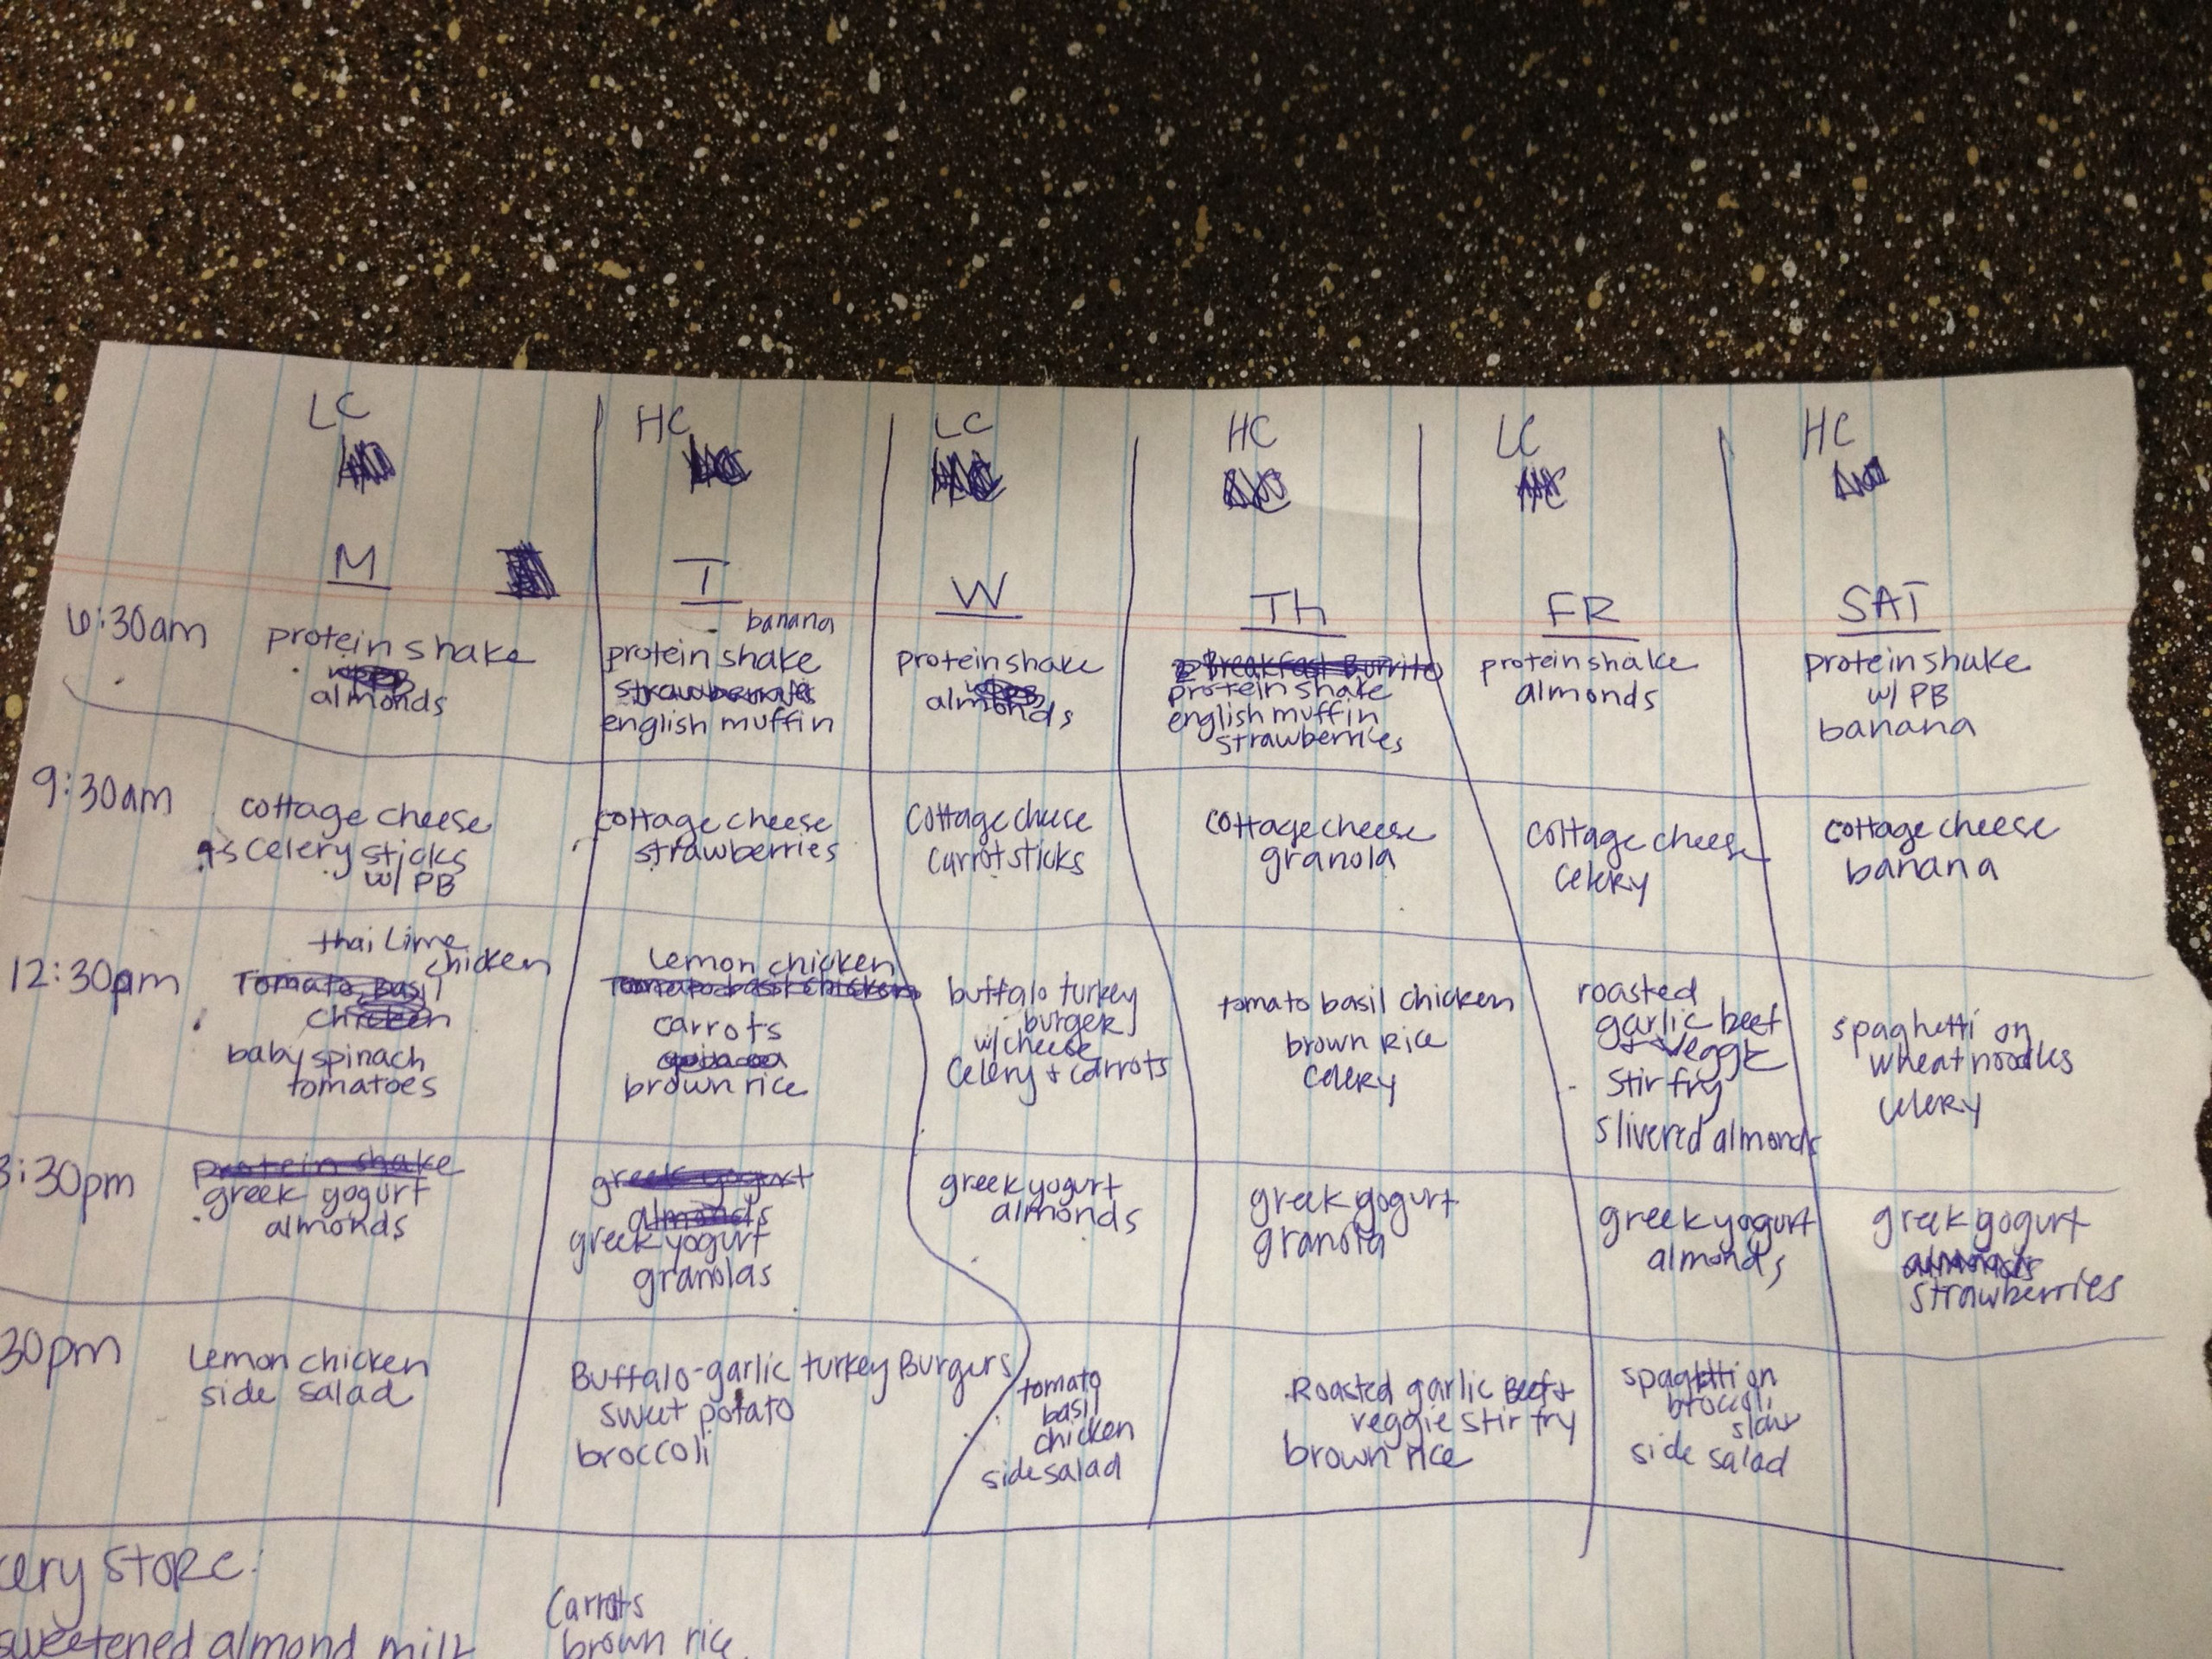 LC
HC
LC
HC
LC
HC
M
T
W
Th
FR
SAT
6:30am
protein shake
almonds
banana
protein shake
strawberries
english muffin
protein shake
almonds
Breakfast Burrito
protein shake
english muffin
strawberries
protein shake
almonds
protein shake
w/ PB
banana
9:30am
cottage cheese
celery sticks
w/ PB
cottage cheese
strawberries
cottage cheese
carrot sticks
cottage cheese
granola
cottage cheese
celery
cottage cheese
banana
12:30pm
thai Lime
chicken
Tomato Basil
chicken
baby spinach
tomatoes
Lemon chicken
Tomato basil chicken
carrots
quinoa
brown rice
buffalo turkey
burger
w/ cheese
celery + carrots
tomato basil chicken
brown rice
celery
roasted
garlic beef
+ veggie
stir fry
slivered almonds
spaghetti on
wheat noodles
celery
3:30pm
protein shake
greek yogurt
almonds
greek yogurt
almonds
greek yogurt
granolas
greek yogurt
almonds
greek yogurt
granola
greek yogurt
almonds
greek yogurt
almonds
strawberries
30pm
Lemon chicken
side salad
Buffalo-garlic turkey Burgers
sweet potato
broccoli
tomato
basil
chicken
side salad
Roasted garlic Beef +
veggie stir fry
brown rice
spaghetti on
broccoli
slaw
side salad
cery store:
sweetened almond milk
Carrots
brown rice